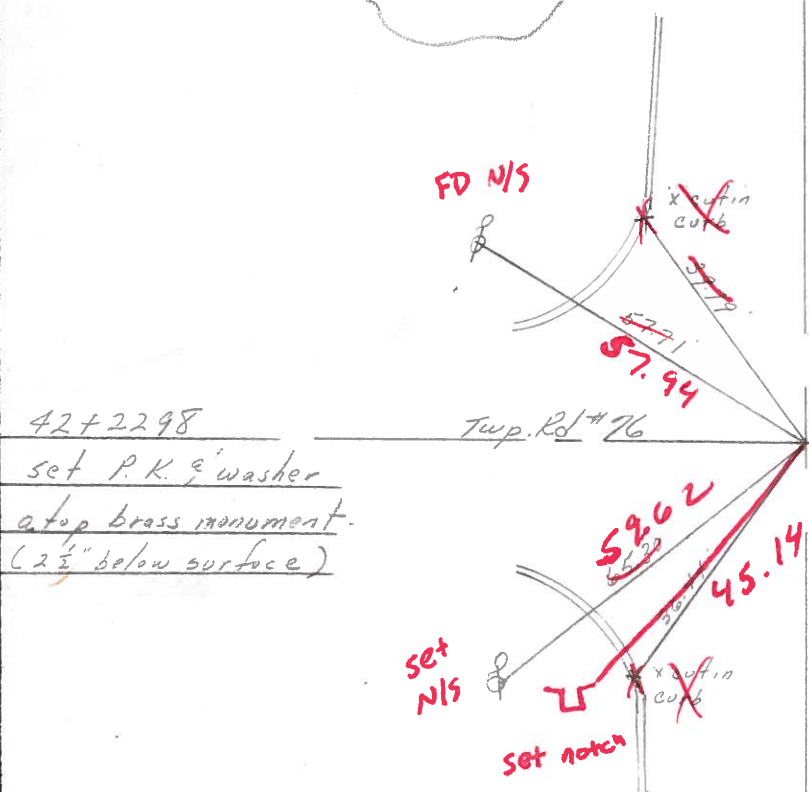 FD N/S
x cut in
curb
39.79
57.71'
57.94
42+2298
Twp. Rd #76
set P.K. & washer
atop brass monument.
(2½" below surface)
59.62
45.14
set
N/S
x cut in
curb
set notch